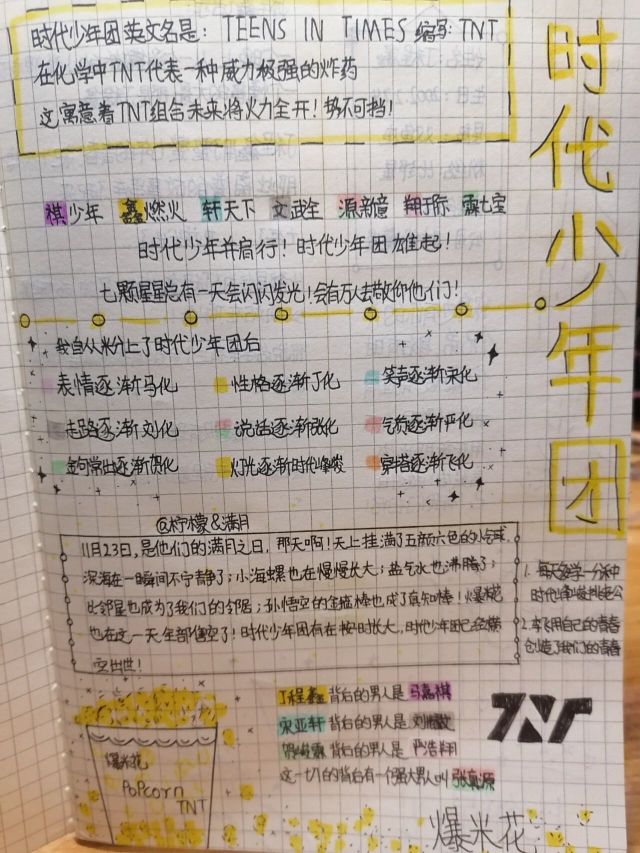 时代少年团英文名是：TEENS IN TIMES 缩写：TNT
在化学中TNT代表一种威力极强的炸药
这寓意着TNT组合未来将火力全开！势不可挡！
时代少年团
祺少年 鑫燃火 轩天下 文武全 源新意 翔于际 霖七宝
时代少年并肩行！时代少年团雄起！
七颗星星总有一天会闪闪发光！会有万人去敬仰他们！
我自从米分上了时代少年团后
表情逐渐马化 性格逐渐丁化 笑声逐渐宋化
走路逐渐刘化 说话逐渐张化 气质逐渐严化
金句常出逐渐贺化 灯光逐渐时代峰峻 穿搭逐渐飞化
@柠檬&满月
11月23日，是他们的满月之日，那天啊！天上挂满了五颜六色的气球
深海在一瞬间不宁静了；小海螺也在慢慢长大；盐气水也沸腾了；
比邻星也成为了我们的邻居；孙悟空的金箍棒也成了真知棒！爆米花
也在这一天全部悟空了！时代少年团有在按时长大，时代少年团已经横
空出世！
1. 每天多学一分钟
时代峰峻
2. 李飞用自己的青春
创造了我们的青春
丁程鑫背后的男人是马嘉祺
宋亚轩背后的男人是刘耀文
贺峻霖背后的男人是严浩翔
这一切的背后有一个强大男人叫张真源
TNT
爆米花
PoPcorn
TNT
爆米花